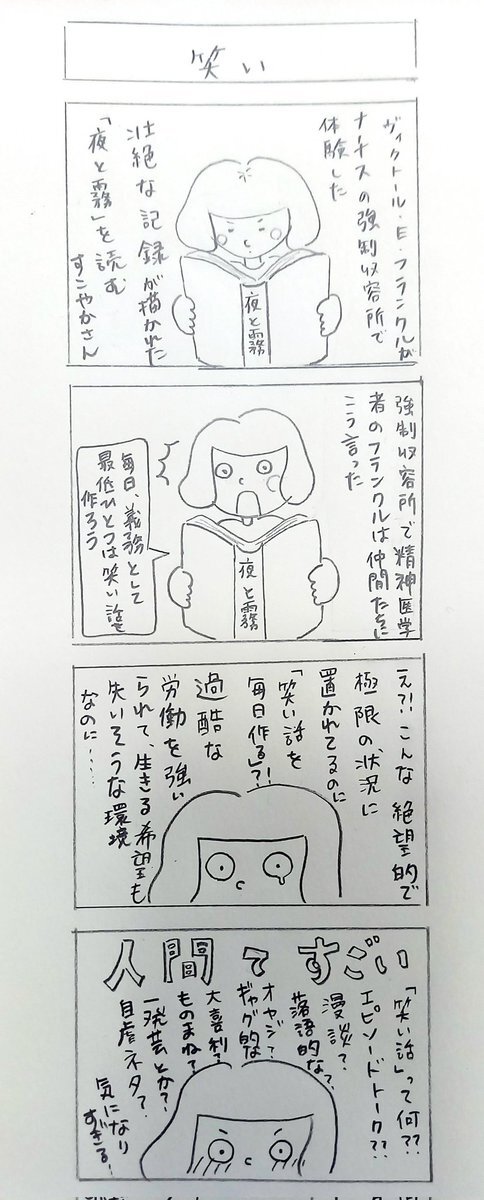 笑い
ヴィクトール・E・フランクルが
ナチスの強制収容所で
体験した
壮絶な記録が描かれた
「夜と霧」を読む
すこやかさん
夜と霧
強制収容所で精神医学
者のフランクルは仲間たちに
こう言った
毎日、義務として
最低ひとつは笑い話を
作ろう
夜と霧
え?!こんな絶望的で
極限の状況に
置かれてるのに
「笑い話を
毎日作る」?!
過酷な
労働を強い
られて、生きる希望も
失いそうな環境
なのに・・・・
人間てすごい
「笑い話」って何??
エピソードトーク??
漫談?
落語的な?
オヤジ
ギャグ的な?
大喜利?
ものまね?
一発芸とか?
自虐ネタ?
気になり
すぎる!